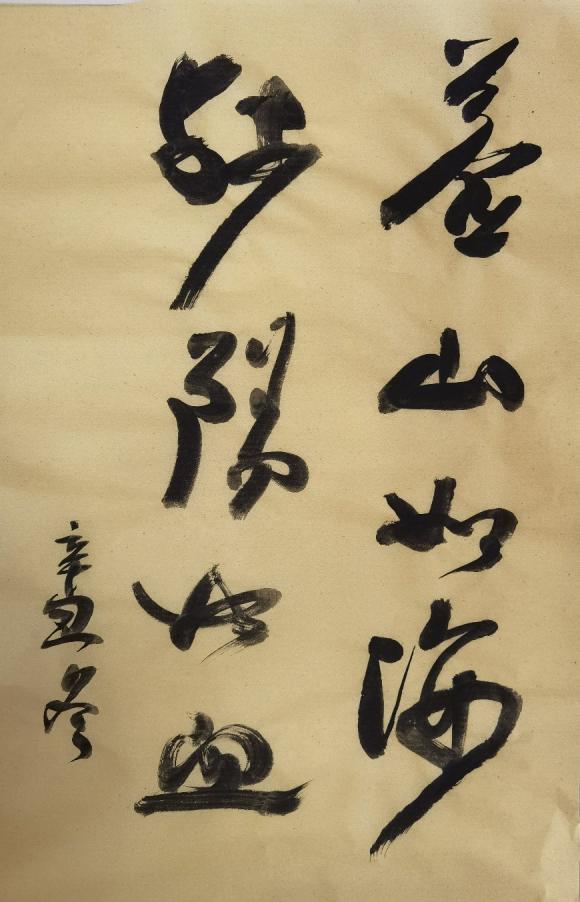 苍山如海
残陽如血
辛丑冬